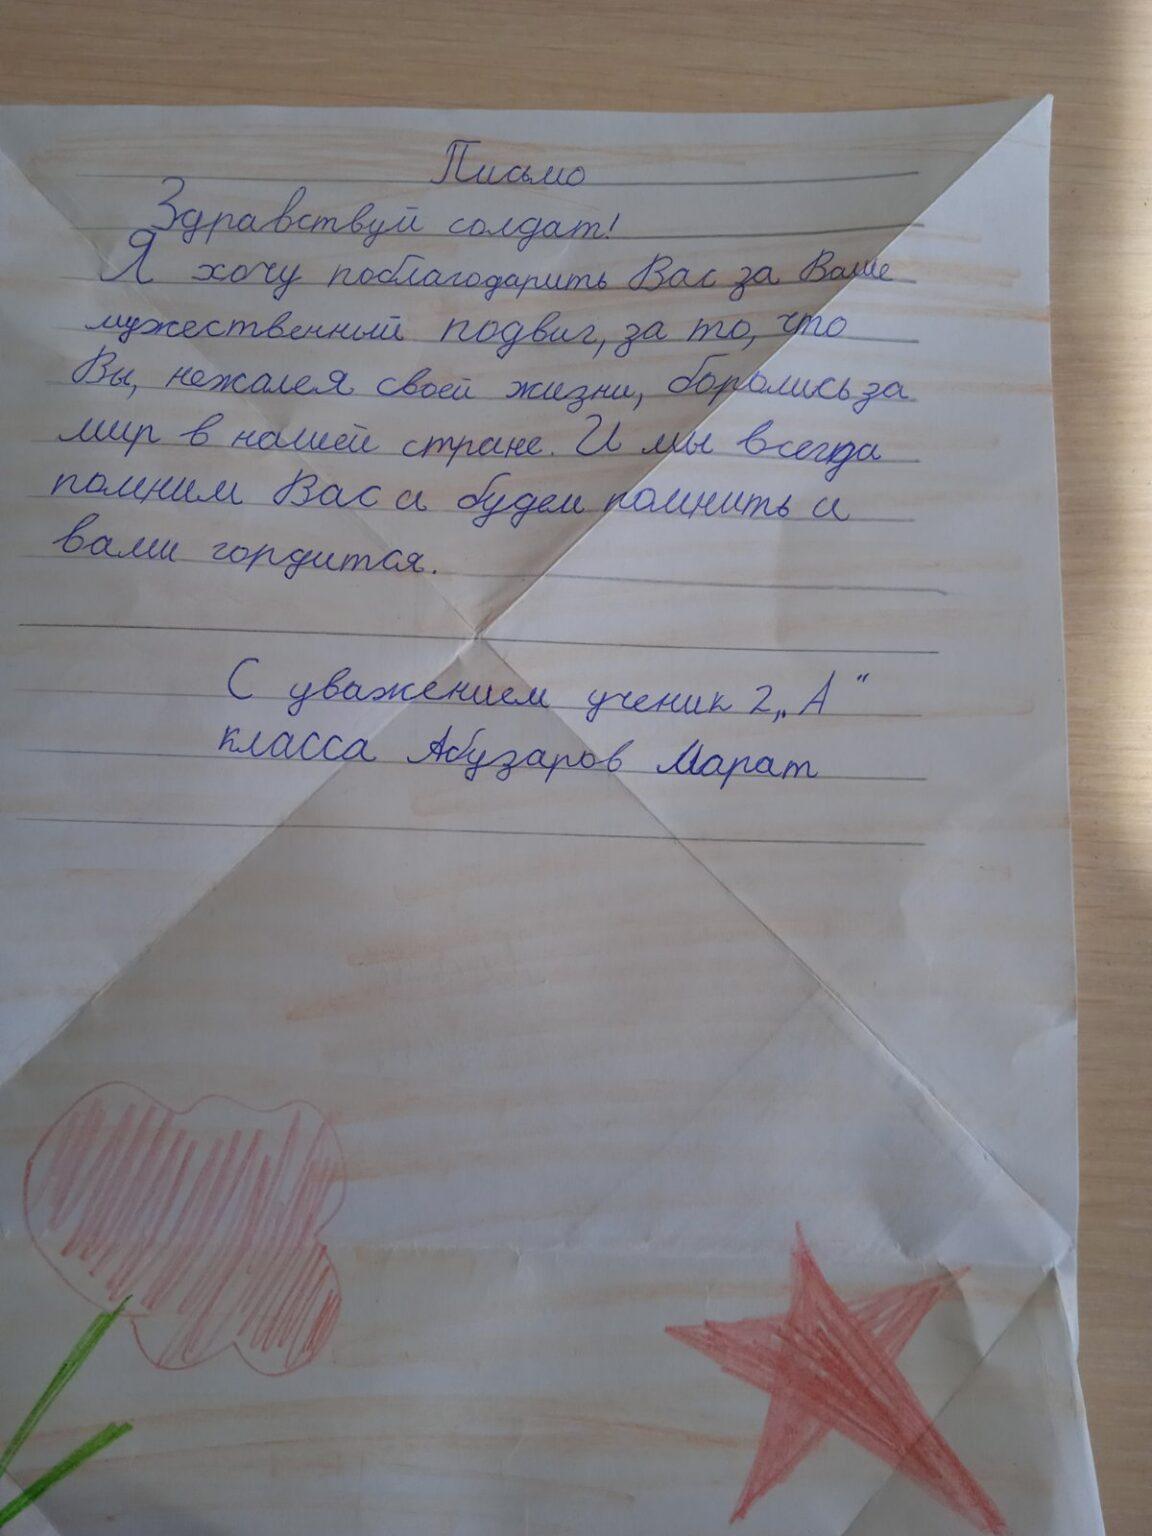 Письмо
Здравствуй солдат!
Я хочу поблагодарить Вас за Ваше
мужественный подвиг, за то, что
Вы, нежалея своей жизни, боролись за
мир в нашей стране. И мы всегда
помним Вас и будем помнить и
вами гордится.
С уважением ученик 2 „А“
класса Абузаров Марат